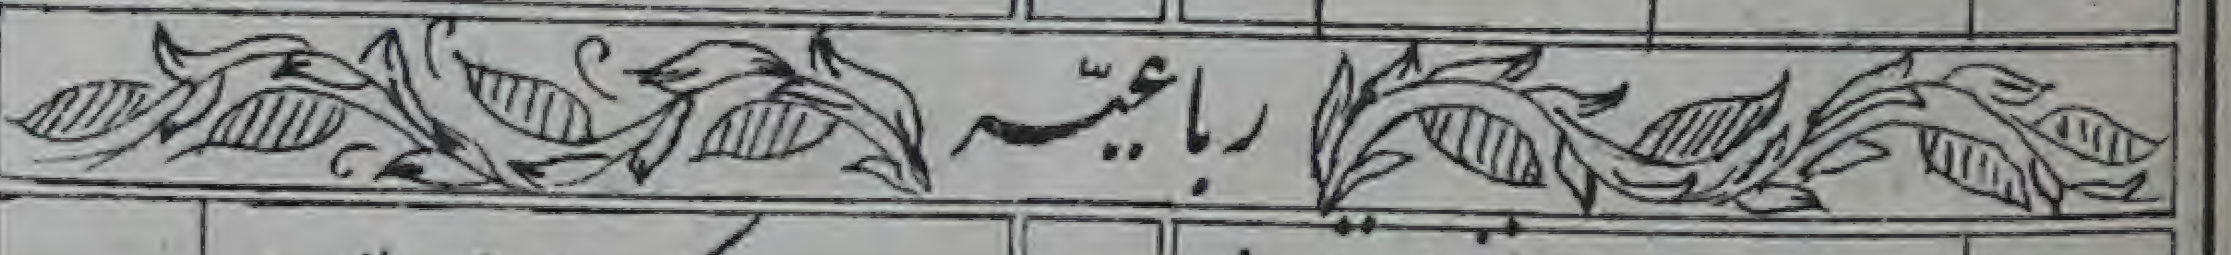 رباعیّہ